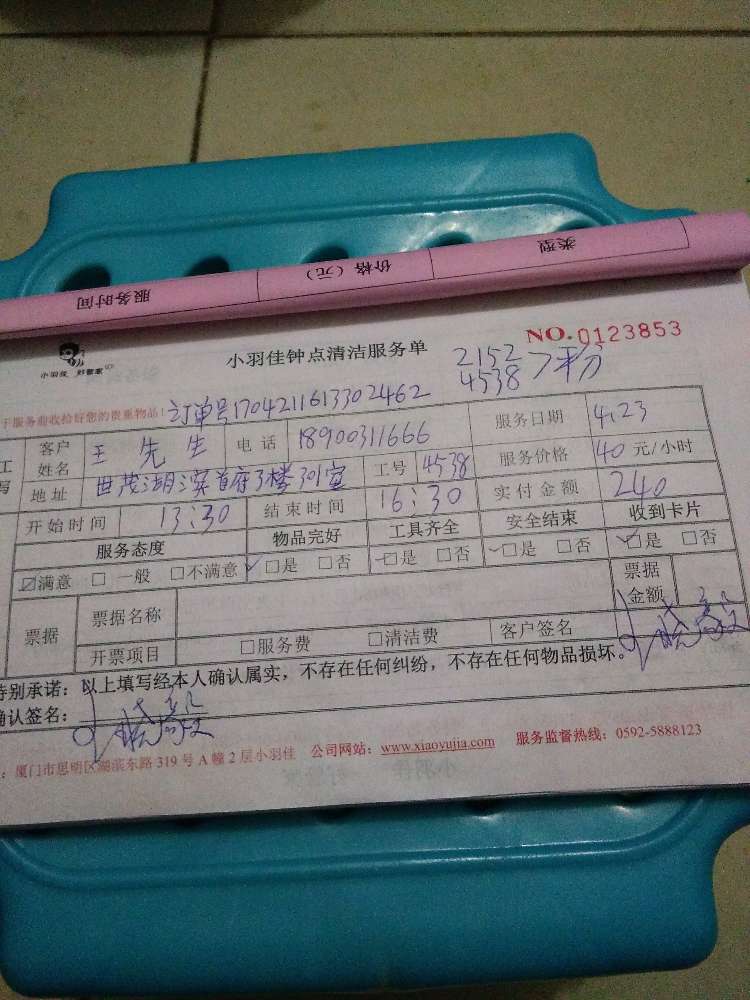 服务时间 价格（元） 类型
小羽佳 好管家
小羽佳钟点清洁服务单
NO.0123853
2152
4538 >粉
于服务前收拾好您的贵重物品! 订单号1704211613302462
客户姓名 王先生 电话 18900311666 服务日期 4.23
地址 世茂湖滨首府3楼301室 工号 4538 服务价格 40 元/小时
开始时间 13:30 结束时间 16:30 实付金额 240
服务态度 物品完好 工具齐全 安全结束 收到卡片
☑满意 □一般 □不满意 ✓□是 □否 ✓□是 □否 ✓□是 □否 ✓□是 □否
票据 票据名称 票据金额
开票项目 □服务费 □清洁费 客户签名
特别承诺：以上填写经本人确认属实，不存在任何纠纷，不存在任何物品损坏。
确认签名：
：厦门市思明区湖滨东路 319 号 A 幢 2 层小羽佳 公司网站：www.xiaoyujia.com 服务监督热线：0592-5888123